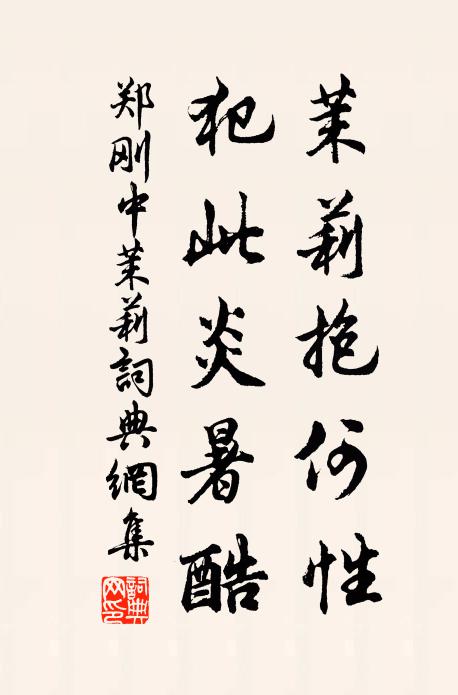 茉莉抱何性
犯此炎暑酷
郑刚中茉莉詞典網集
詞典網印